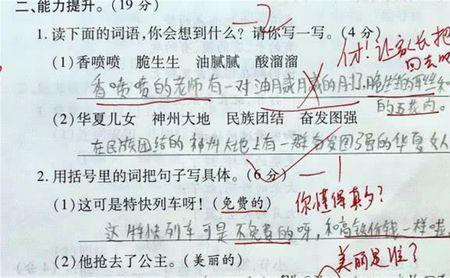 二、能力提升。(19分)
1.读下面的词语,你会想到什么?请你写一写。(4分)
(1)香喷喷 脆生生 油腻腻 酸溜溜
什么!让家长把
香喷喷的老师有一对油腻腻的
(2)华夏儿女 神州大地 民族团结 奋发图强
在民族团结的神州大地上有一群奋发图强的华夏女人
2.用括号里的词把句子写具体。(6分)
(1)这可是特快列车呀!(免费的)
你懂得真多?
这特快列车可是不免费的呀,和高铁价钱一样啦
(2)他抢去了公主。(美丽的)
美丽是谁?